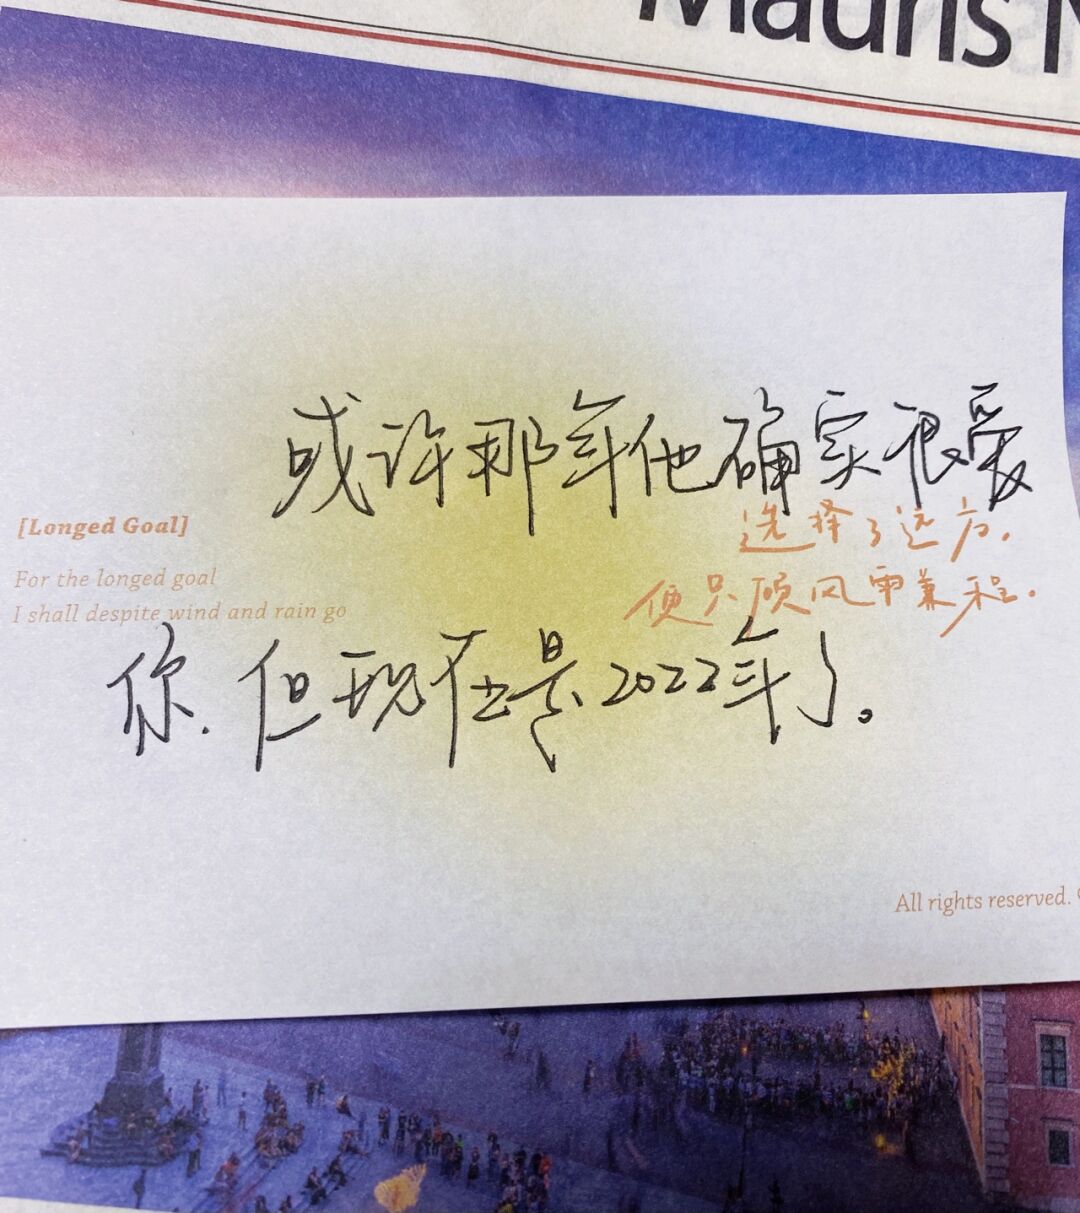 Mauris N
或许那年他确实很爱
[Longed Goal]
选择了远方，
For the longed goal
便只顾风雨兼程.
I shall despite wind and rain go
你.但现在是2022年了。
All rights reserved.